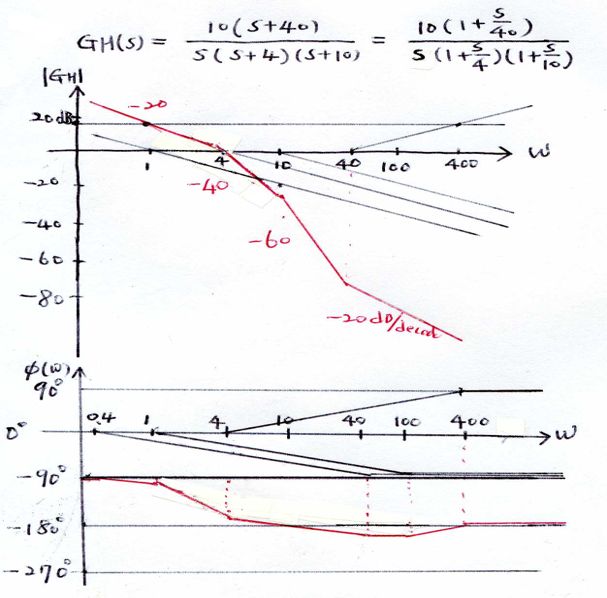 GH(s) = 10(s+40) / s(s+4)(s+10) = 10(1+s/40) / s(1+s/4)(1+s/10)
|GH|
-20
20dB
1 4 10 40 100 400 w
-20
-40
-40
-60
-60
-80
-20dB/decad
φ(w)
90°
0.4 1 4 10 40 100 400
0° w
-90°
-180°
-270°